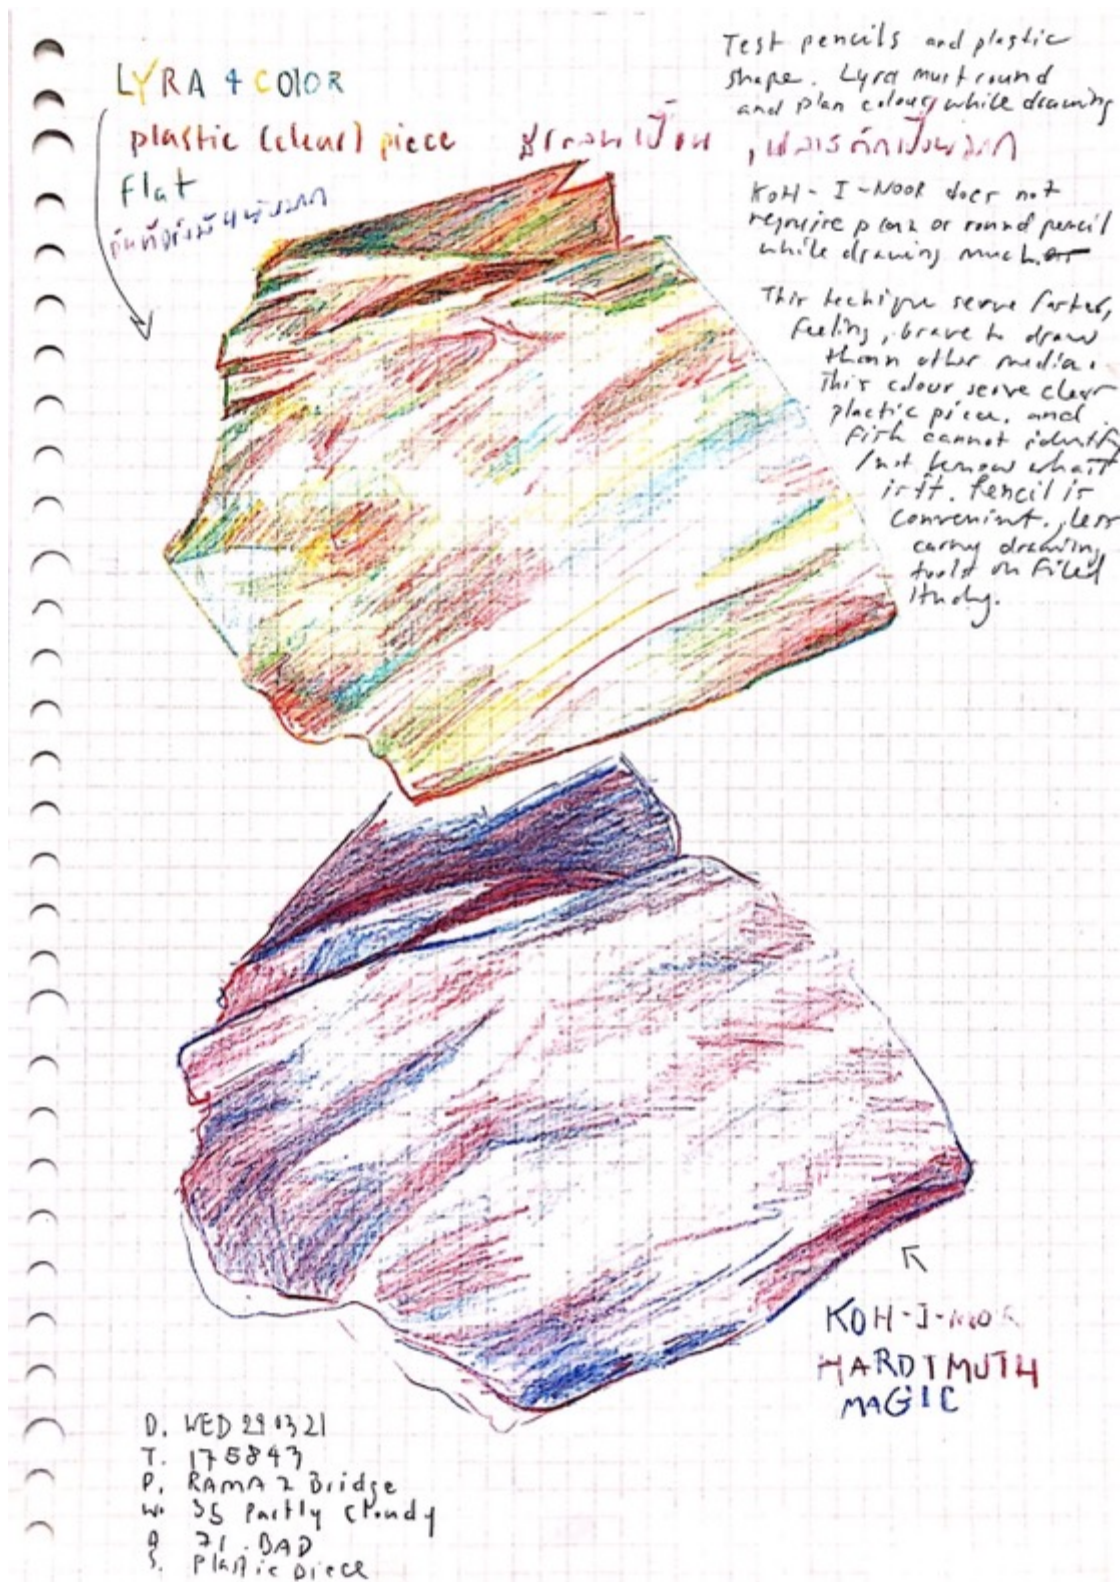 LYRA 4 COLOR
plastic (clear) piece
flat
Test pencils and plastic
shape. Lyra must round
and plan colour while drawing
KOH-I-NOOR does not
require plan or round pencil
while drawing much.
This techique serve faster,
feeling, brave to draw
than other media.
This colour serve clear
plastic piece. and
Fish cannot identify
/not know what
is it. Pencil is
convenint., less
carry drawing
tools on Filed
study.
KOH-I-NOOR
HARDTMUTH
MAGIC
D. WED 29 03 21
T. 175843
P. RAMA 2 Bridge
W. 35 Partly Cloudy
71. BAD
S. Plastic piece